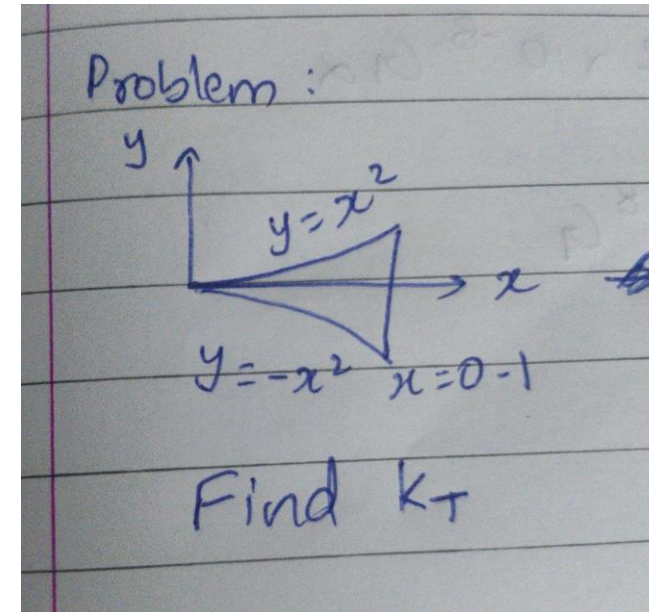 Problem :
y
y = x²
x
y = -x² x = 0-1
Find k_T